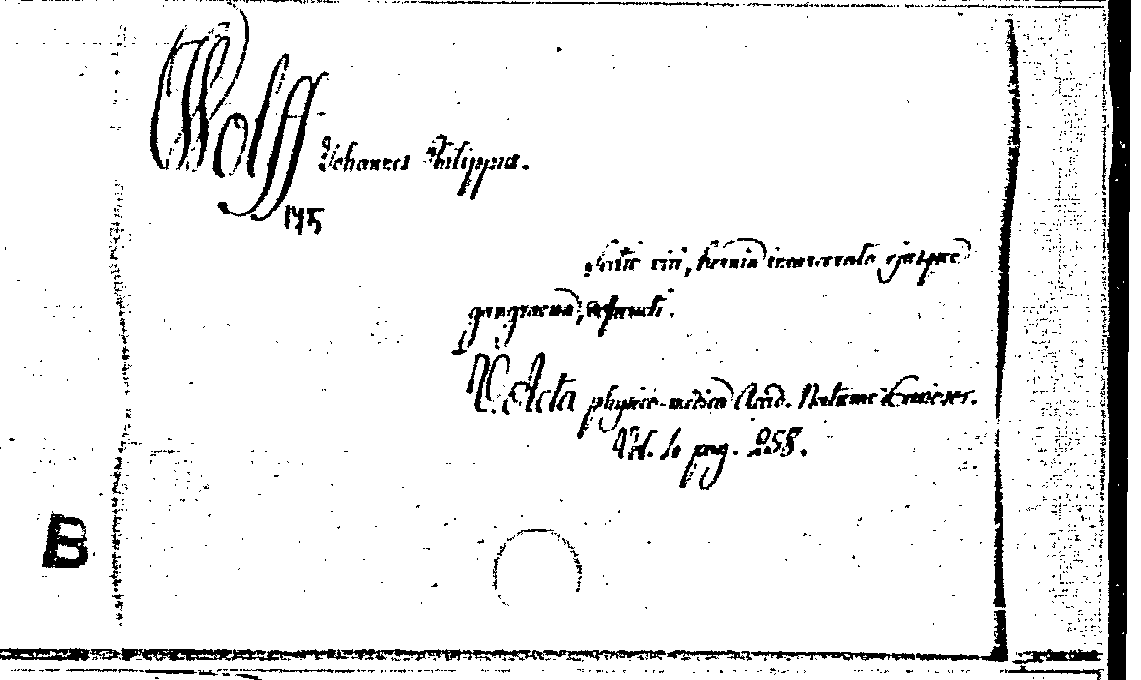 Wolff Johannes Philippus.
175
viri, hernia incarcerata ejusque
gangraena, defuncti.
N. Acta physico-medica Acad. Naturae Curiosor.
Vol. pag. 258.
B